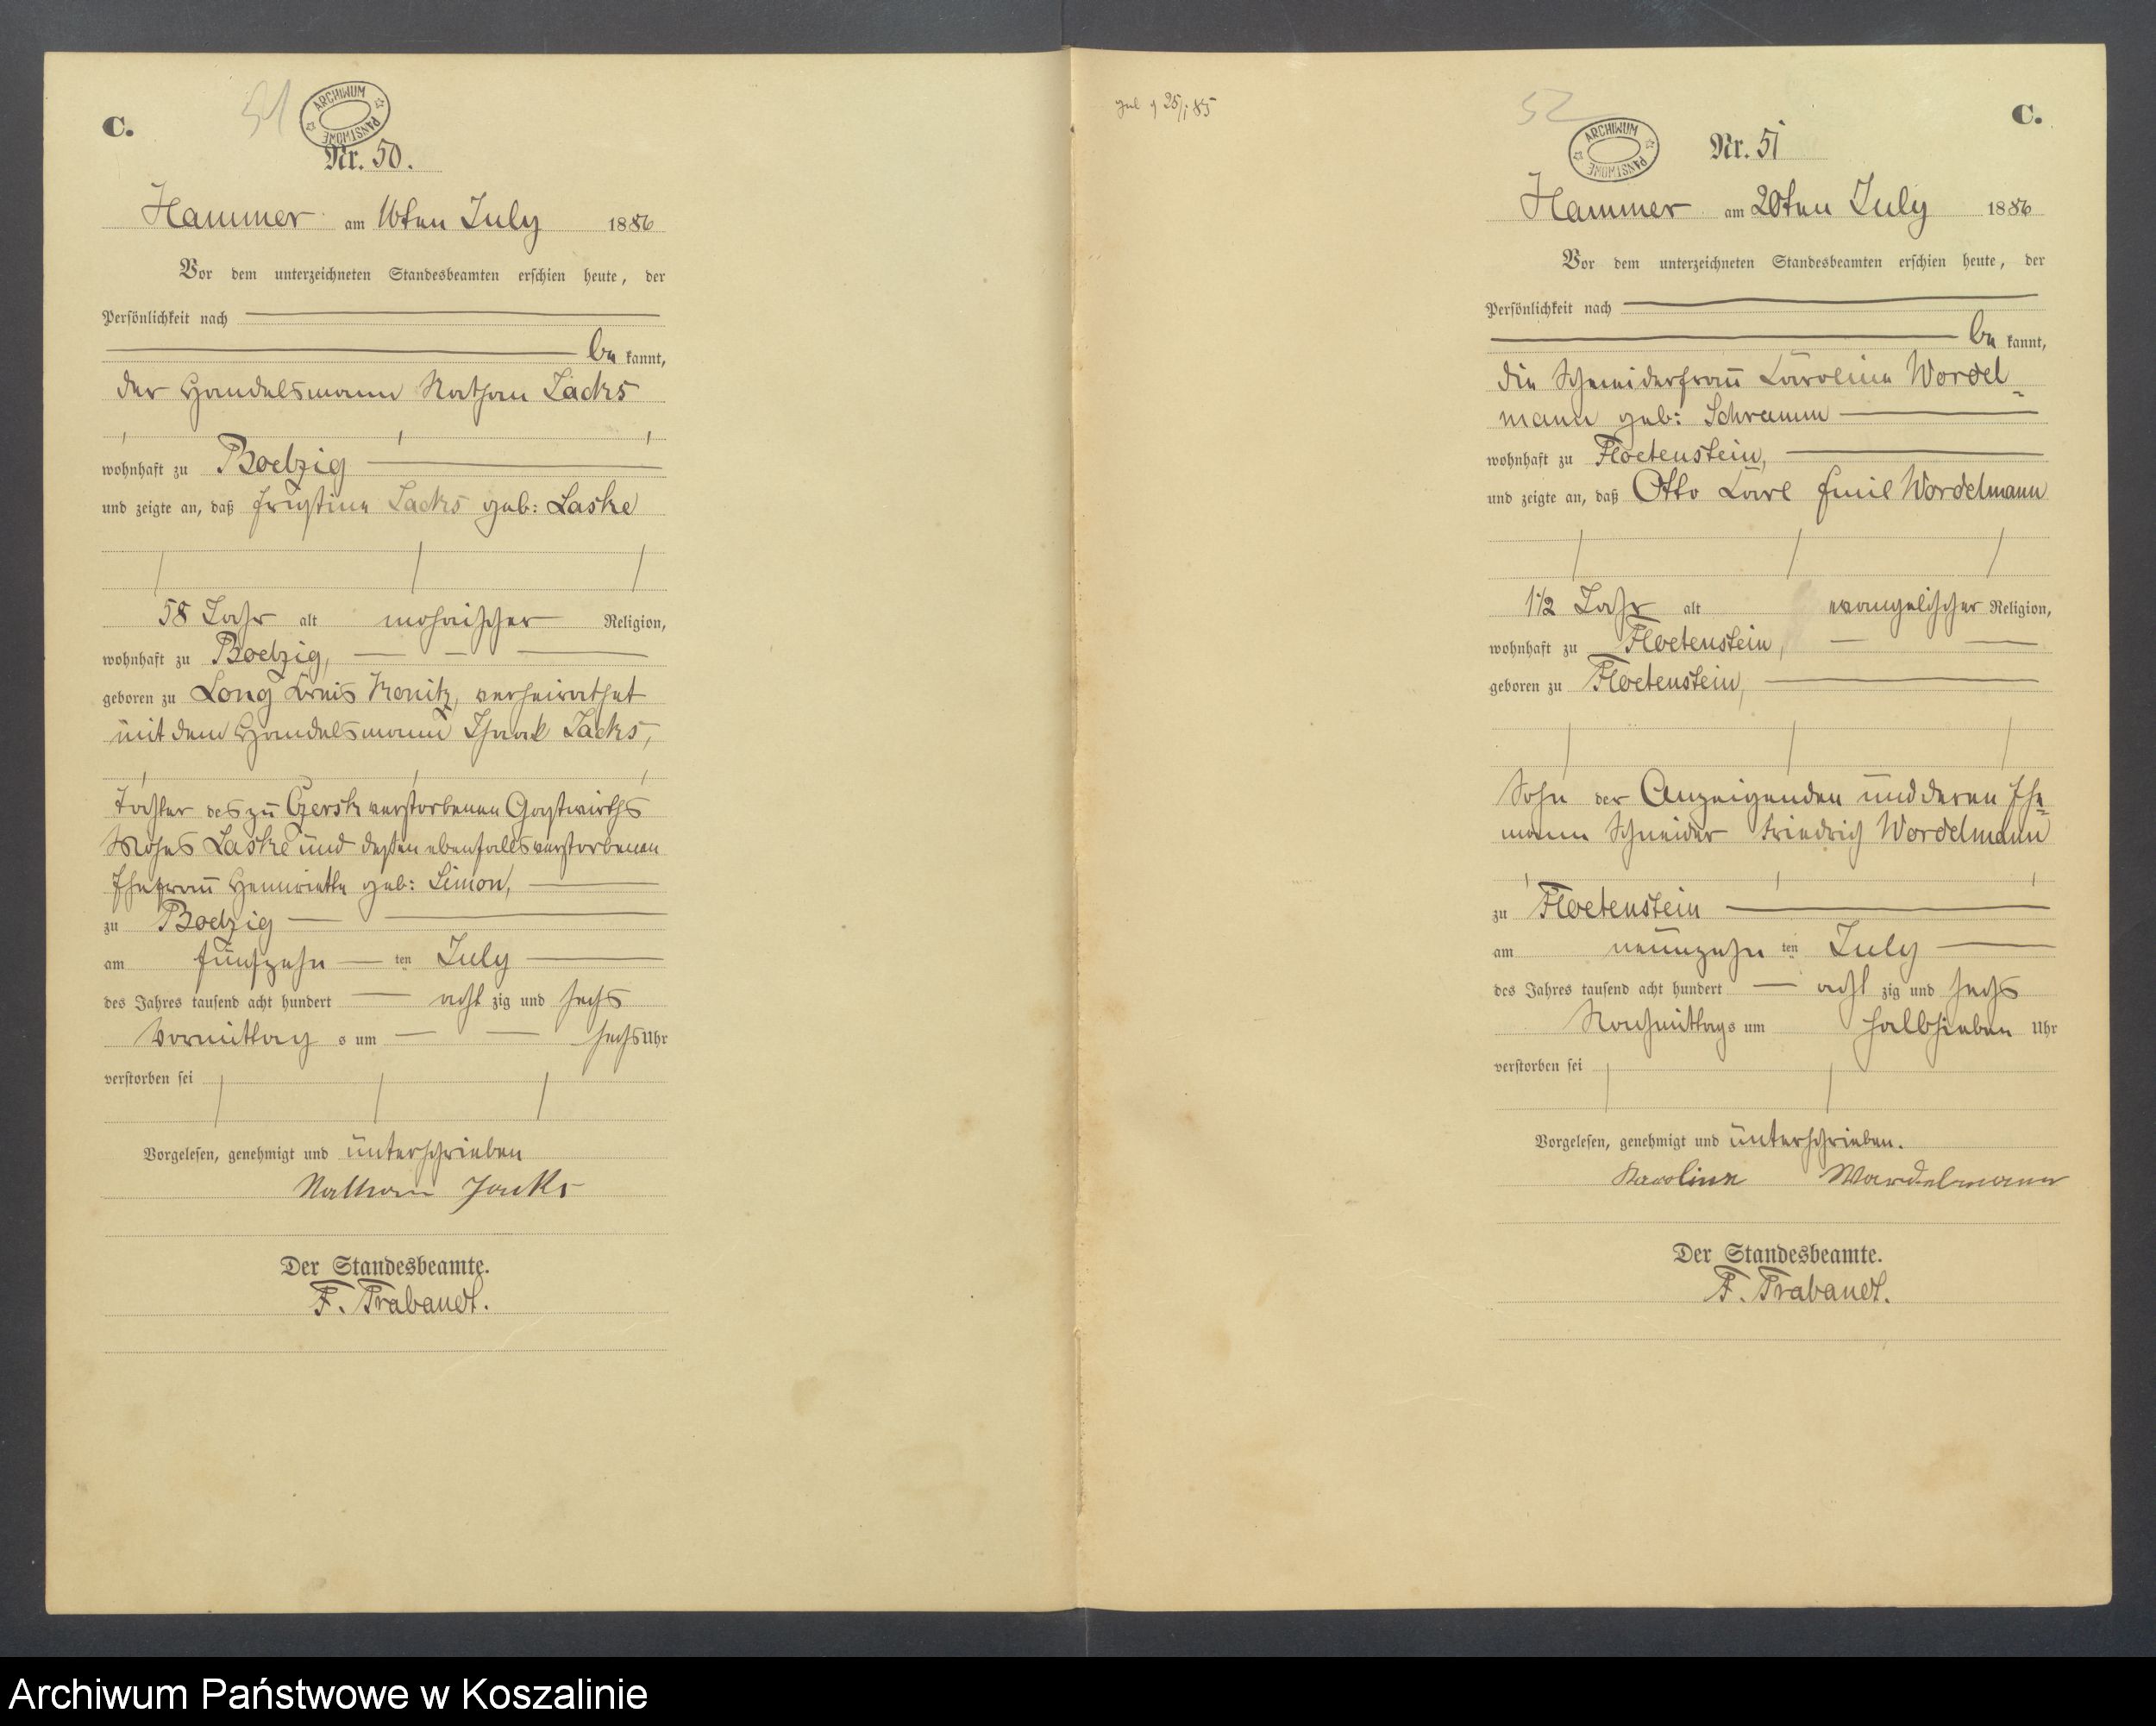 C.
51
ARCHIWUM PAŃSTWOWE
Nr. 50.
Hammer am 16ten July 1886
Vor dem unterzeichneten Standesbeamten erschien heute, der
Persönlichkeit nach
be kannt,
der Handelsmann Nathan Jacks
wohnhaft zu Boelzig
und zeigte an, daß Jacks geb: Laske
58 Jahr alt mosaischer Religion,
wohnhaft zu Boelzig,
geboren zu Long Kreis Konitz, verheirathet
mit dem Handelsmann Isaak Jacks,
Tochter des zu Czersk verstorbenen Gastwirths
Moses Laske und dessen ebenfalls verstorbenen
Ehefrau Henriette geb: Simon,
zu Boelzig
am fünfzehn ten July
des Jahres tausend acht hundert acht zig und sechs
Vormittag s um sechs Uhr
verstorben sei
Vorgelesen, genehmigt und unterschrieben
Nathan Jacks
Der Standesbeamte.
F. Trabandt.
25/1 85
52
C.
ARCHIWUM PAŃSTWOWE
Nr. 51
Hammer am 20ten July 1886
Vor dem unterzeichneten Standesbeamten erschien heute, der
Persönlichkeit nach
be kannt,
die Schneiderfrau Karoline Wordel-
mann geb: Schramm
wohnhaft zu Floetenstein,
und zeigte an, daß Otto Karl Emil Wordelmann
1 1/2 Jahr alt evangelischer Religion,
wohnhaft zu Floetenstein,
geboren zu Floetenstein,
Sohn der Anzeigenden und deren Ehe=
mann Schneider Friedrich Wordelmann
zu Floetenstein
am neunzehn ten July
des Jahres tausend acht hundert acht zig und sechs
Nachmittags um halbsieben Uhr
verstorben sei
Vorgelesen, genehmigt und unterschrieben.
Karoline Wardelmann
Der Standesbeamte.
F. Trabandt.
Archiwum Państwowe w Koszalinie